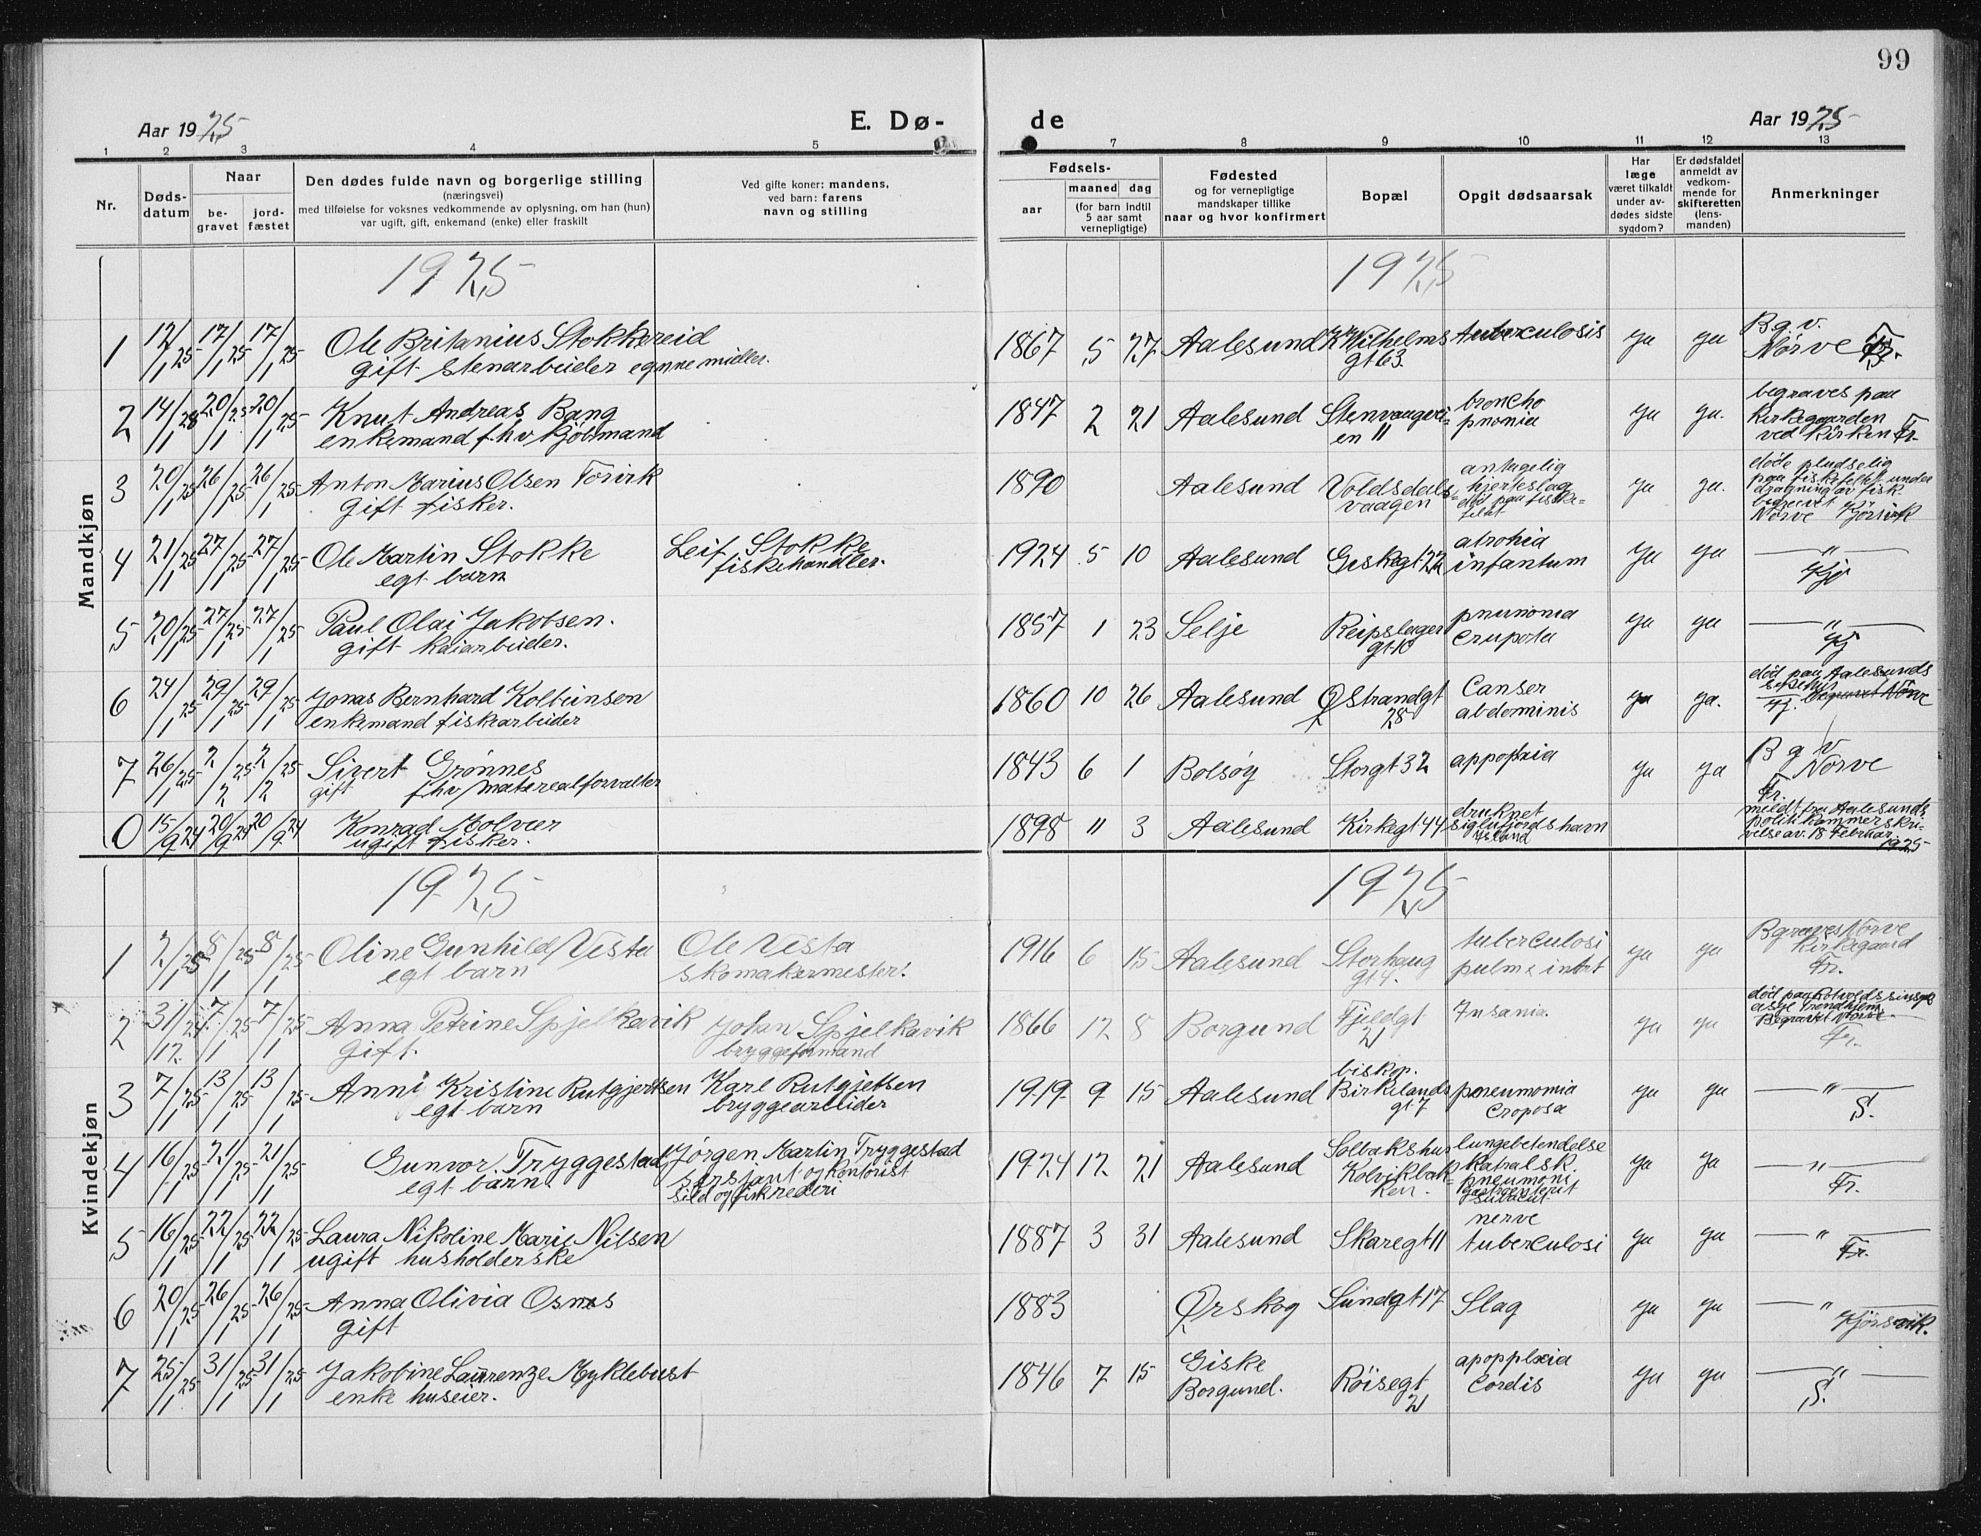 99
Aar 1925
E. Dø-
de
Aar 1925
1 2 3 4 5 7 8 9 10 11 12 13
Nr.
Døds-
datum
Naar
be-
gravet
jord-
fæstet
Den dødes fulde navn og borgerlige stilling
(næringsvei)
med tilføielse for voksnes vedkommende av oplysning, om han (hun)
var ugift, gift, enkemand (enke) eller fraskilt
Ved gifte koner: mandens,
ved barn: farens
navn og stilling
Fødsels-
aar
maaned dag
(for barn indtil
5 aar samt
vernepligtige)
Fødested
og for vernepligtige
mandskaper tillike
naar og hvor konfirmert
Bopæl
Opgit dødsaarsak
Har
læge
været tilkaldt
under av-
dødes sidste
sygdom?
Er dødsfaldet
anmeldt av
vedkom-
mende for
skifteretten
(lens-
manden)
Anmerkninger
Mandkjøn
1925
1925
1 12/1 25 17/1 25 17/1 25 Ole Britanius Stokkereid
gift stenarbeider egnne midler.
1867 5 27 Aalesund K Wilhelms
gt 63.
tuberculosis ya ya B g v.
Nørve Fr.
2 14/1 25 20/1 25 20/1 25 Knut Andreas Bang
enkemand f.h.v kjöbmand
1847 2 21 Aalesund Stenvaagvei-
en 11
broncho
pnomia
ya ya. begraves paa
kirkegaarden
ved kirken Fr.
3 20/1 25 26/1 25 26/1 25 Anton Marius Olsen
Gift fisker.
1890 Aalesund Voldsdals-
vaagen
antagelig
hjerteslag
død paa fiske-
feltet
ya ya. døde pludselig
paa fiskefeltet under
dragning av fisk.
begravet
Nørve Kjörsvik
4 21/1 25 27/1 25 27/1 25 Ole Martin Stokke
egt barn
Leif Stokke
fiskehandler.
1924 5 10 Aalesund Giskegt 22
atrohia
infantum
ya ya — " —
Kjr
5 20/1 25 27/1 25 27/1 25 Paul Olai Jakobsen.
gift kaiarbeider.
1857 1 23 Selje Reipslager
gt 10
pnumonia
Cruposa
ya ya — " —
Kj
6 24/1 25 29/1 25 29/1 25 Jonas Bernhard Kolbeinsen
enkemand fiskearbeider
1860 10 26 Aalesund Ø Strandgt
28
Canser
abdominis
ya ya. død paa Aalesunds
begravet Nörve
7 26/1 25 2/2 25 2/2 25 Sivert Grønnes
gift f.hv materealforvalter
1843 6 1 Bolsøy Storgt 32 appoplxia ya ya B g v
Nørve
Fr.
0 15/9 24 20/9 24 20/9 24 Konrad Molvær
ugift fisker.
1898 11 3 Aalesund Kirkegt 44
druknet
Siglufjordshavn
Island
meldt fra Aalesunds
politikammer skri-
velse av 18 februar
1925
Kvindekjøn
1925
1925
1 2/1 25 8/1 25 8/1 25 Oline Gunhild Vesta
egt barn
Ole Vesta
skomakermester.
1916 6 15 Aalesund Storhaug
gt 4.
tuberculosi
pulm &amp; intst
ya ya BgravesNørve
Kirkegaard
Fr.
2 31/12 24 7/1 25 7/1 25 Anna Petrine Spjelkavik
Gift.
Johan Spjelkavik
bryggeformand
1866 12 8 Borgund Fjeldgt
21
Insania. ya ya
asyl Trondhjem
Begravet Nørve.
Fr.
3 7/1 25 13/1 25 13/1 25 Anni Kristine Rutgjertsen
egt barn
Karl Rutgjetsen
bryggearbeider
1919 9 15 Aalesund biskop.
Birkelands
gt 7
pneumomia
Croposa
ya ya — " —
S.
4 16/1 25 21/1 25 21/1 25 Gunvor. Tryggestad
egt barn.
Jørgen Martin Tryggestad
sersjant og kontorist
sild og fiskrederi
1924 12 21 Aalesund Solbakshus
Kolvikbak-
ken.
lungebetendelse
katralsk.
pneumoni
gastroenterit
subacut
ya ya — " —
Fr.
5 16/1 25 22/1 25 22/1 25 Laura Nikoline Marie Nilsen
ugift husholderske
1887 3 31 Aalesund Skaregt 11
nerve
tuberculosi
ya ya — " —
Fr.
6 20/1 25 26/1 25 26/1 25 Anna Olivia Osnes
Gift
1883 Ørskog Sundgt 17 Slag ya ya — " —
Kjörsvik.
7 25/1 25 31/1 25 31/1 25 Jakobine Laurenze Myklebust
enke huseier.
1846 7 15 Giske
Borgund.
Røisegt
21
apopplxia
Cordis
ya ya — " —
S.